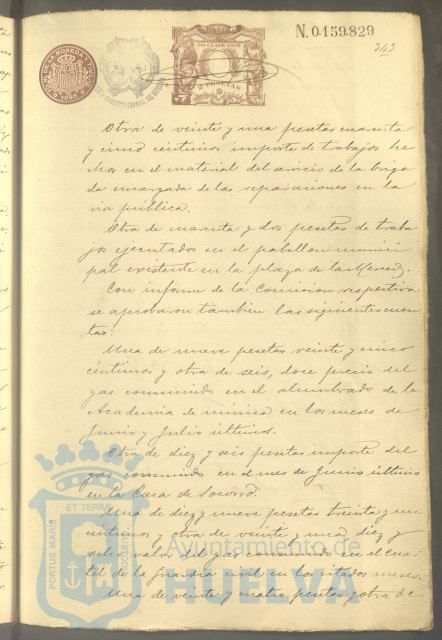 N. 0.159.829
343
3 PESETAS
Otra de veinte y una pesetas cuarenta
y cinco centimos importe de trabajos he
chos en el material del servicio de la briga
da encargada de las reparaciones en la
via pública.
Otra de cuarenta y dos pesetas de traba
jos ejecutados en el pabellon munici
pal existente en la plaza de la Merced.
Con informe de la Comision respectiva
se aprobaron tambien las siguientes cuen
tas:
Una de nueve pesetas veinte y cinco
céntimos y otra de seis, doce precio del
gas consumido en el alumbrado de la
Academia de música en los meses de
Junio y Julio últimos.
Otra de diez y seis pesetas importe del
gas consumido en el mes de Junio último
en la Casa de Socorro.
Una de diez y nueve pesetas treinta y un
céntimos y otra de veinte y una, diez y
del gas consumido en el cuar
tel de la Guardia civil en los citados meses.
Una de veinte y cuatro pesetas y otra de
PORTUS MARIS
ET TERRAE
CUSTODIA
Ayuntamiento de
HUELVA